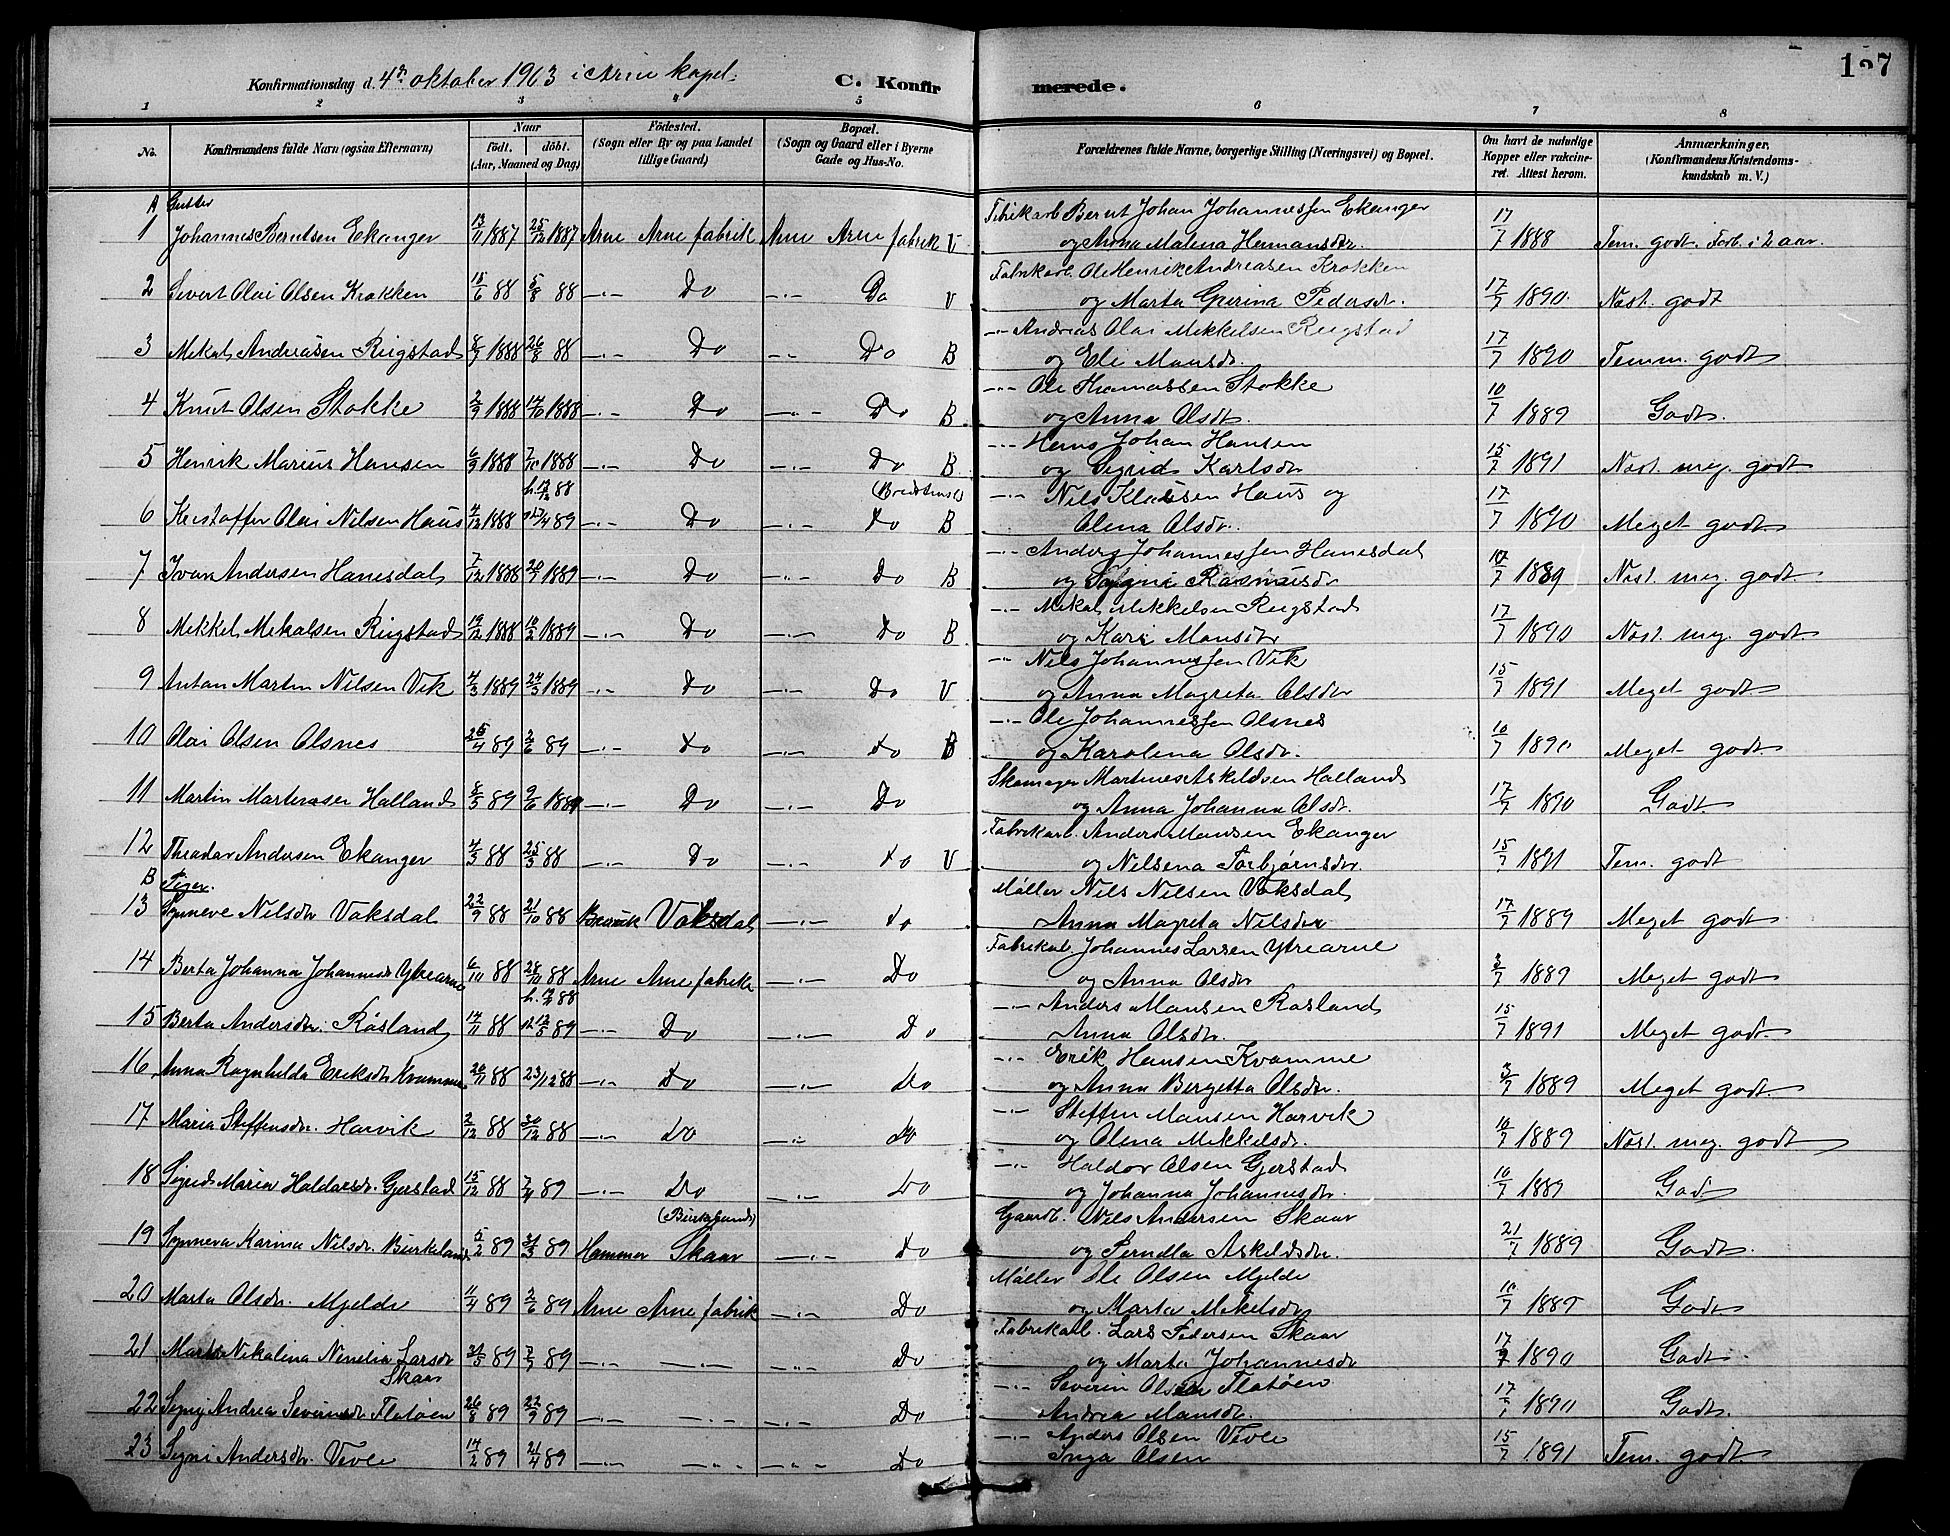 127
Konfirmationsdag d. 4de oktober 1903 i Arne kapel.
C. Konfirmerede.
1 2 3 4 5 6 7 8
No. Konfirmandens fulde Navn (ogsaa Efternavn) Naar født. døbt. (Aar, Maaned og Dag) Födested. (Sogn eller By og paa Landet tillige Gaard) Bopæl. (Sogn og Gaard eller i Byerne Gade og Hus-No. Forældrenes fulde Navne, borgerlige Stilling (Næringsvei) og Bopæl. Om havt de naturlige Kopper eller vakcineret. Attest herom. Anmærkninger. (Konfirmandens Kristendomskundskab m. V.)
A Gutter
Fabrikarb. Bernt Johan Johannessen Ekanger
1 Johannes Berntsen Ekanger 13/11 1887 25/12 1887 Arne Arne fabrik Arne Arne fabrik V og Anna Malena Hermansdr. 17/7 1888 Tem. godt. Forb. i 2 aar.
Fabrikarb. Ole Henrik Andreasen Krokken
2 Sivert Olai Olsen Krokken 15/6 88 5/8 88 —〃— Do —〃— Do V og Marta Gurina Pedersdr. 17/7 1890 Nost. godt
—〃— Andreas Olai Mikkelsen Ringstad
3 Mikal Andreasen Ringstad 8/7 1888 26/8 88 —〃— Do —〃— Do B og Eli Mansdr. 17/7 1890 Temm. godt
—〃— Ole Thomassen Stokke
4 Knut Olsen Stokke 2/9 1888 14/10 1888 —〃— Do —〃— Do B og Anna Olsdr. 10/7 1889 Godt.
—〃— Hans Johan Hansen
5 Henrik Marius Hansen 6/9 1888 7/10 1888 —〃— Do —〃— Do B og Sigrid Karlsdr 15/7 1891 Nost. meg. godt
—〃— Nils Klausen Haus og
6 Kristoffer Olai Nilsen Haus 4/12 1888 /4 89 —〃— Do —〃— Do B Olena Olsdr. 17/7 1890 Meget godt
—〃— Anders Johannessen Hanesdal
7 Ivar Andersen Hanesdal 7/12 1888 1889 —〃— Do —〃— Do B og Signi Rasmusdr 10/7 1889 Nost. meg. godt
—〃— Mikal Mikkelsen Ringstad
8 Mikkel Mikalsen Ringstad 19/12 1888 10/2 1889 —〃— Do —〃— Do B og Kari Mansdr 17/7 1890 Nost. meg. godt.
—〃— Nils Johannessen Vik
9 Anton Martin Nilsen Vik 4/3 1889 24/3 1889 —〃— Do —〃— Do V og Anna Magreta Olsdr 15/7 1891 Meget godt
—〃— Ole Johannessen Olsnes
10 Olai Olsen Olsnes 26/4 89 2/6 89 —〃— Do —〃— Do B og Karolina Olsdr. 10/7 1890 Meget godt.
Skomager Martines Askeldsen Halland
11 Martin Martinsen Halland 8/5 89 9/6 1889 —〃— Do —〃— Do og Anna Johanna Olsdr. 17/7 1890 Godt
Fabrikarb. Anders Monsen Ekanger
12 Theodor Andersen Ekanger 4/3 88 25/3 88 —〃— Do —〃— Do V og Nilsena Torbjørnsdr. 15/7 1891 Tem. godt
B Piger.
Møller Nils Nilsen Vaksdal
13 Synneve Nilsdr Vaksdal 22/9 88 21/10 88 Bruvik Vaksdal —〃— Do Anna Magreta Nilsdr 17/7 1889 Meget godt
Fabrikarb. Johannes Larsen Ytrearne
14 Berta Johanna Johannesdr Ytrearne 6/10 88 28/10 88 Arne Arne fabrik —〃— Do og Anna Olsdr 3/7 1889 Meget godt
—〃— Anders Monsen Røsland
15 Berta Andersdr. Røsland 14/11 88 12/5 89 —〃— Do —〃— Do Anna Olsdr. 15/7 1891 Meget godt
—〃— Erik Hansen Kvamme
16 Anna Ragnhilda Eriksdr Kvamme 20/11 88 23/12 88 —〃— Do —〃— Do og Anna Bergetta Olsdr. 3/7 1889 Meget godt
—〃— Steffen Monsen Harvik
17 Maria Steffensdr. Harvik 2/12 88 30/12 88 —〃— Do —〃— Do og Olena Mikkelsdr. 10/7 1889 Nost. meg. godt
—〃— Haldor Olsen Gjerstad
18 Sigrid Maria Haldorsdr. Gjerstad 15/12 88 7/4 89 —〃— Do —〃— Do og Johanna Johannesdr. 10/7 1889 Godt
(Birkeland)
Gaardb. Nils Andersen Skaar
19 Synneva Karina Nilsdr. Birkeland 5/2 89 31/3 89 Hammer Skaar —〃— Do og Pernilla Askeldsdr. 21/7 1889 Godt.
Møller Ole Olsen Mjelde
20 Marta Olsdr. Mjelde 11/4 89 2/6 89 Arne Arne fabrik —〃— Do og Marta Mikelsdr 10/7 1889 Godt
Fabrikarb. Lars Pedersen Skaar
21 Marta Nikolina Larsdr Skaar 31/5 89 7/7 89 —〃— —〃— —〃— Do og Marta Johannesdr 17/7 1890 Godt
—〃— Severin Olsen Flatøen
22 Signy Andrea Severinsdr Flatøen 26/8 89 22/9 89 —〃— —〃— —〃— Do Andrea Mansdr. 17/7 1890 Godt.
—〃— Anders Olsen Veole
23 Signi Andersdr. Veole 14/2 89 21/4 89 —〃— —〃— —〃— Do Inga Olsen 15/7 1891 Tem. godt